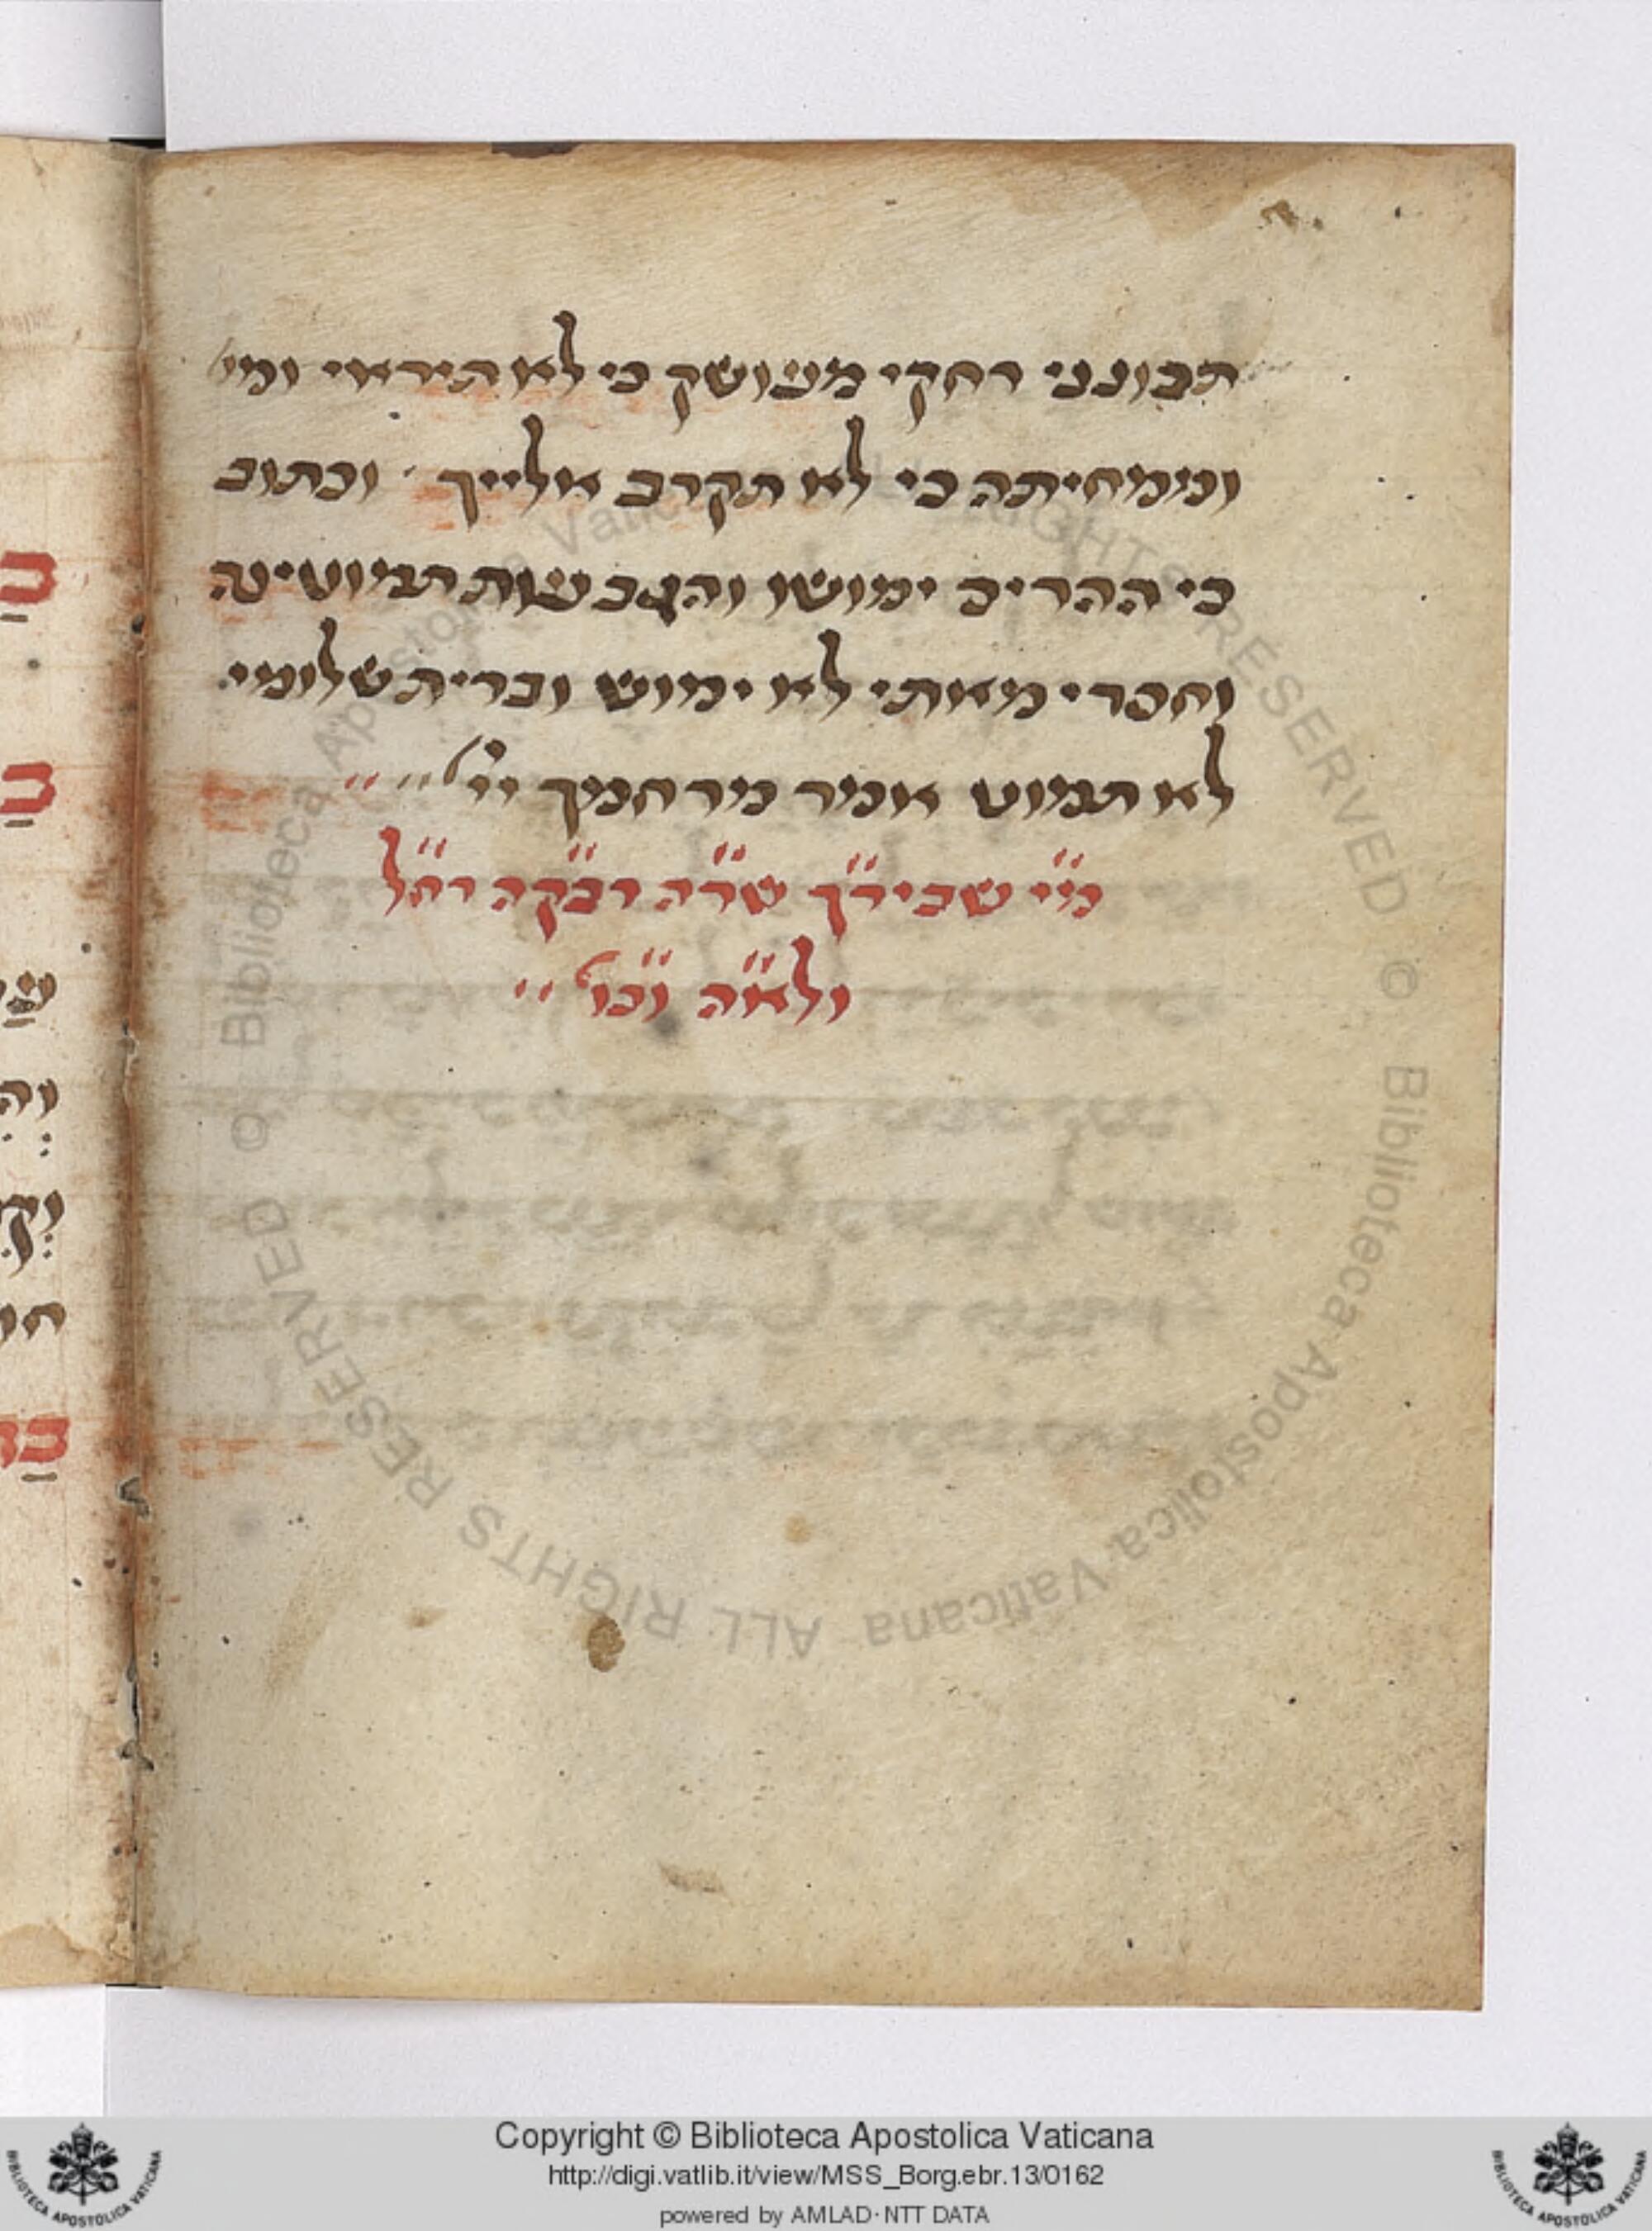 תכונני רחקי מעושק כי לא תיראי ומי׳
וממחיתה כי לא תקרב אלייך · וכתוב
כי ההרים ימושו והגבעות תמוטינה
וחסדי מאתי לא ימוש וברית שלומי
לא תמוט אמר מרחמיך יי׳
מ״י שבירך שר״ה רב״קה רח״ל
ולא״ה וכו׳
ALL RIGHTS RESERVED © Biblioteca Apostolica Vaticana ALL RIGHTS RESERVED © Biblioteca Apostolica Vaticana
Copyright © Biblioteca Apostolica Vaticana
http://digi.vatlib.it/view/MSS_Borg.ebr.13/0162
powered by AMLAD·NTT DATA
BIBLIOTECA APOSTOLICA VATICANA
BIBLIOTECA APOSTOLICA VATICANA